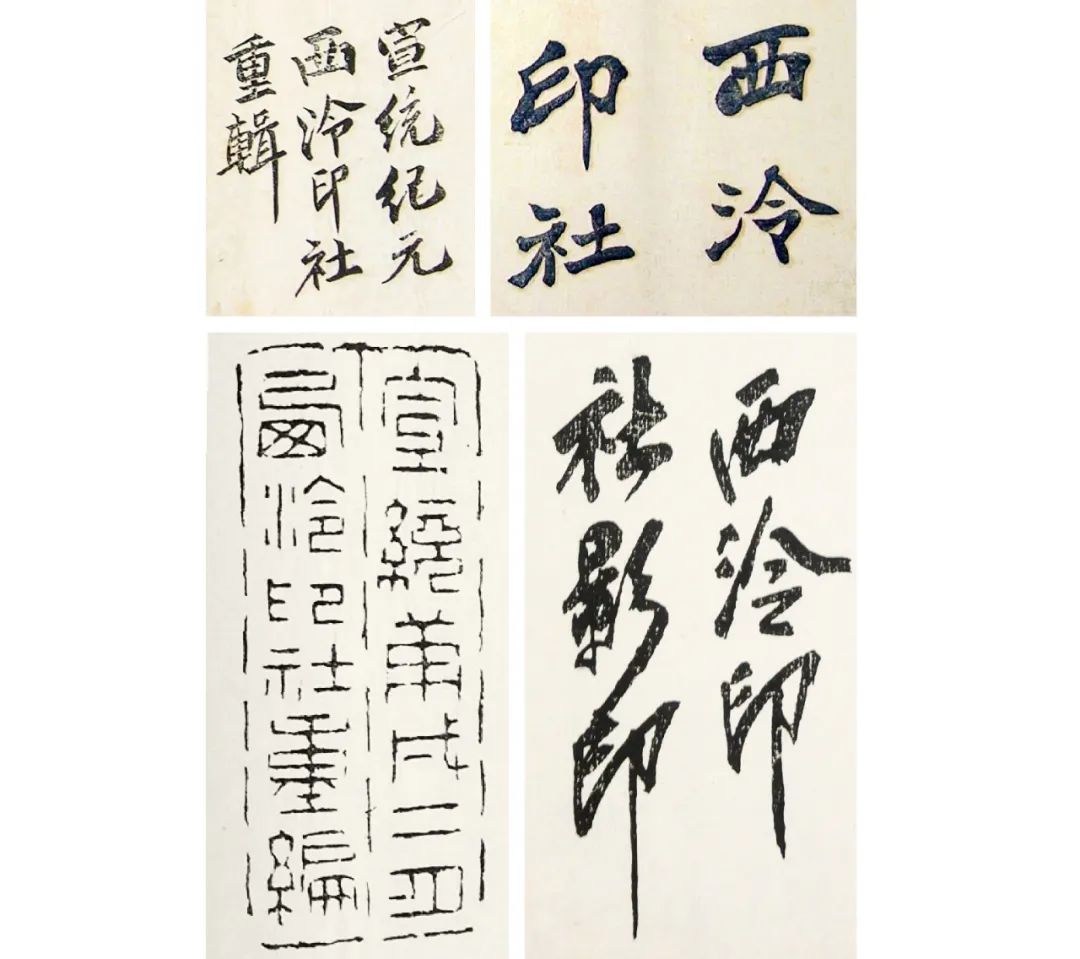 宣統紀元
西泠印社
重輯
西泠
印社
宣統庚戌二月
西泠印社重編
西泠印
社影印